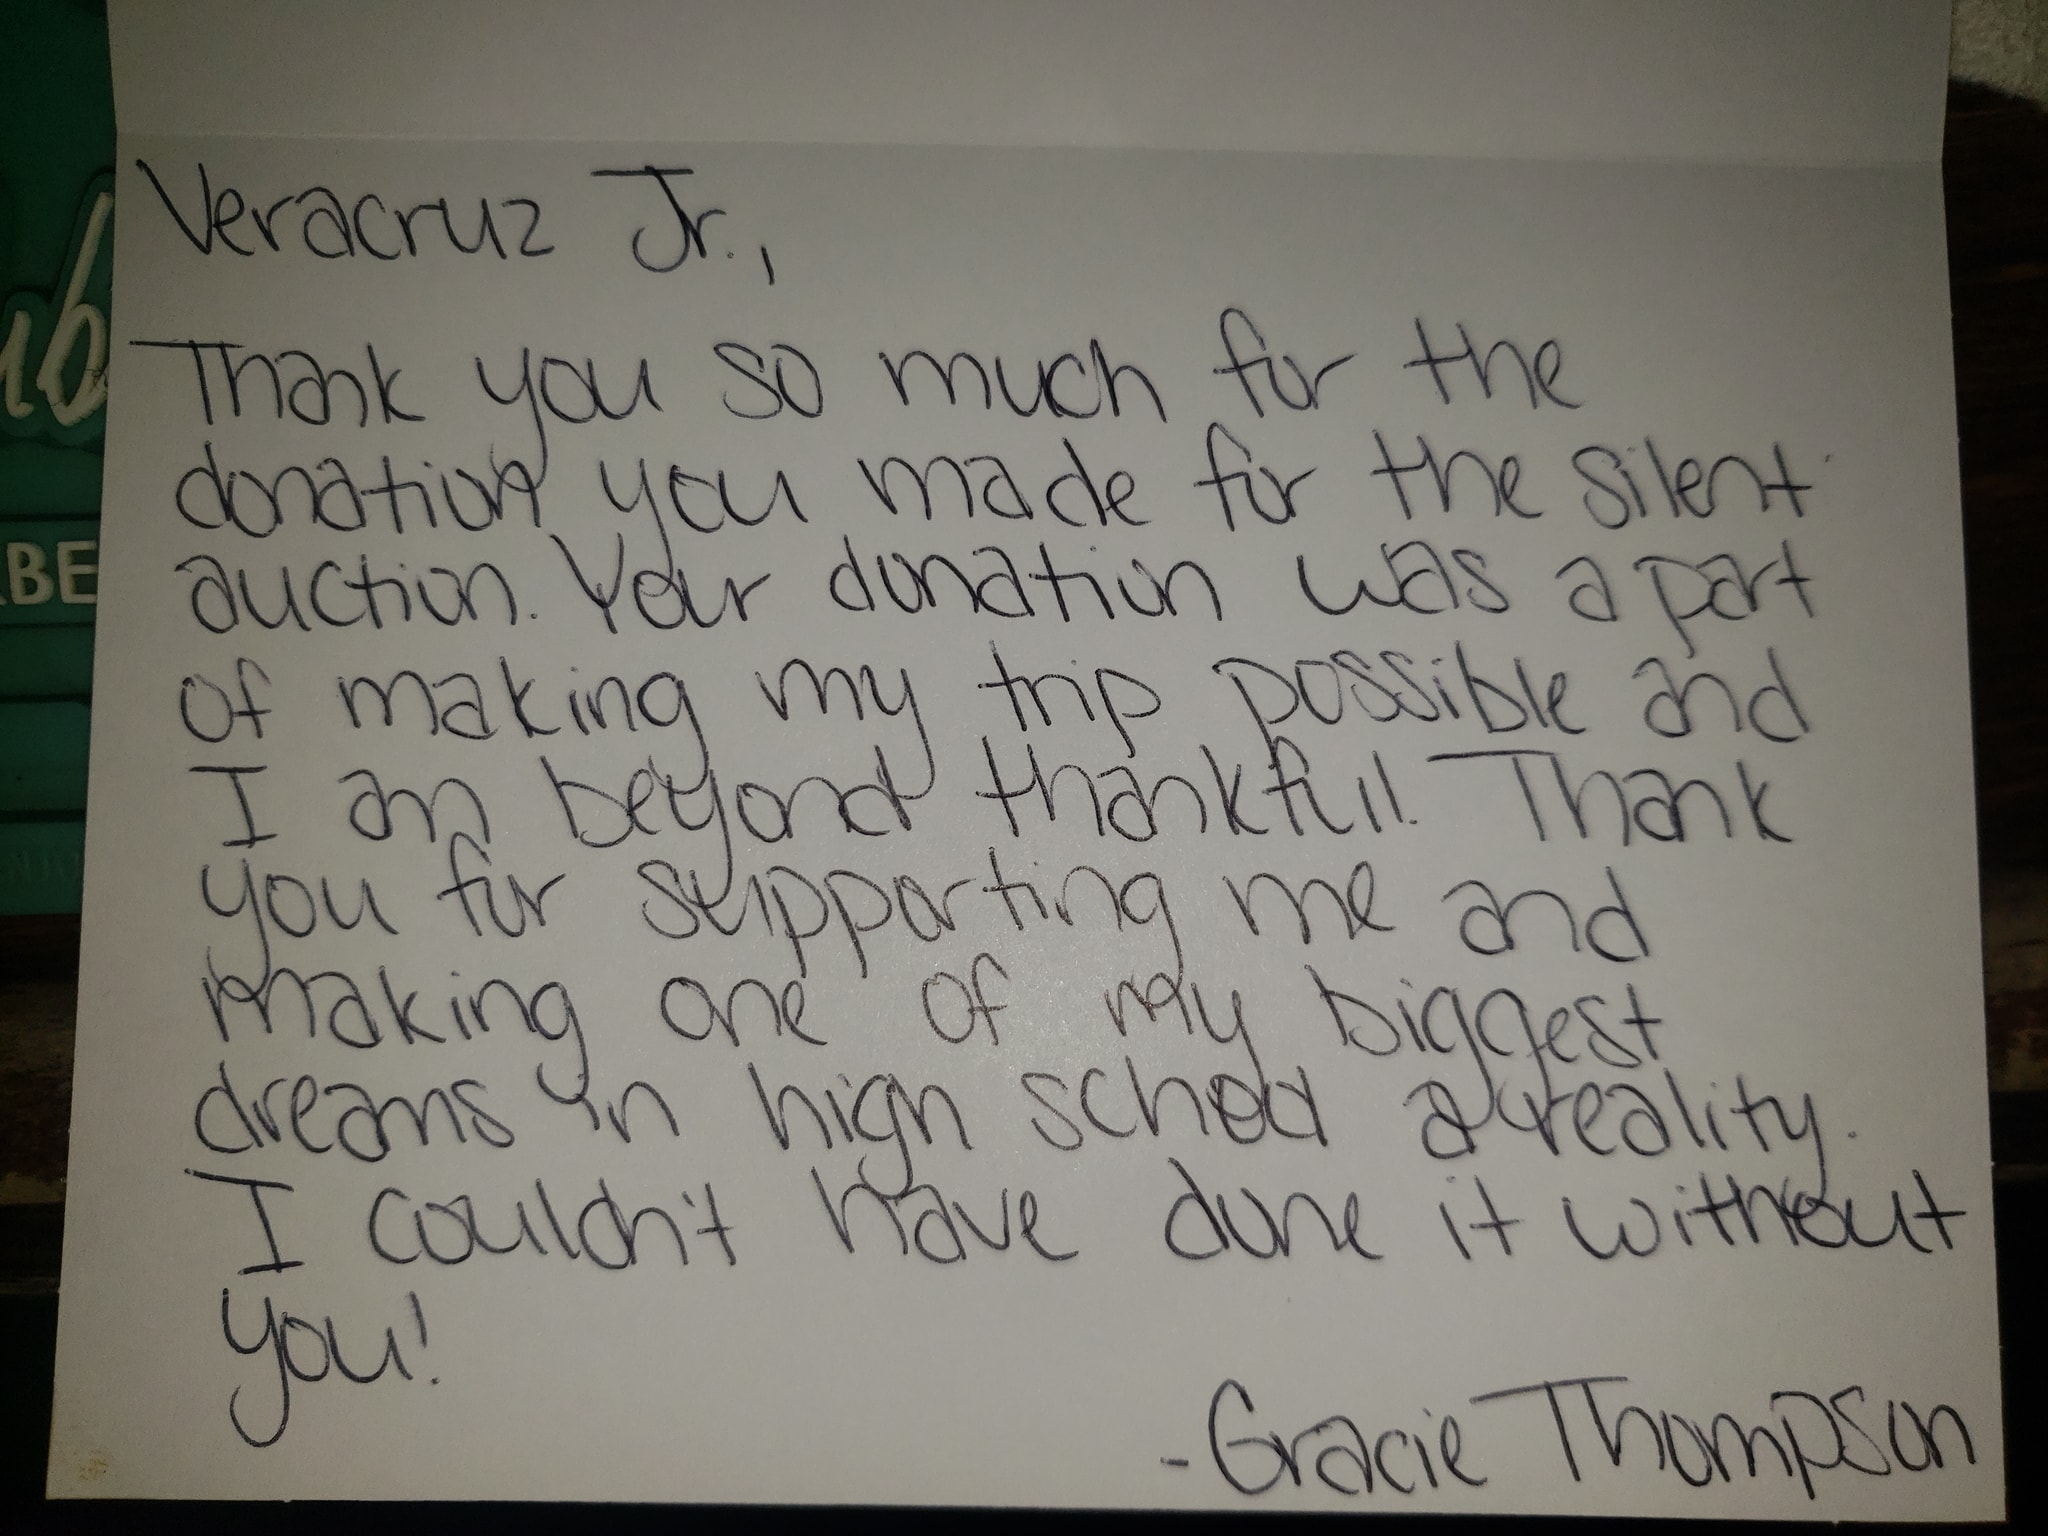 Veracruz Jr.,
Thank you so much for the
donation you made for the silent
auction. Your donation was a part
of making my trip possible and
I am beyond thankful! Thank
you for supporting me and
making one of my biggest
dreams in high school a reality.
I couldn't have done it without
you!
-Gracie Thompson
ub
BE